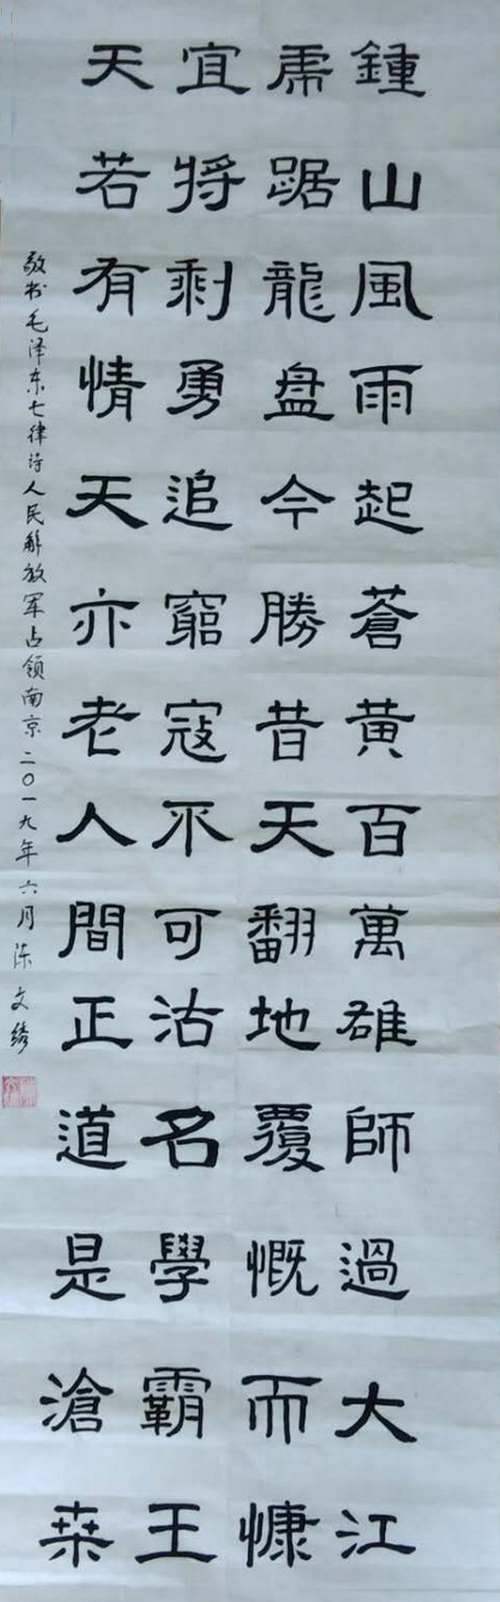 鍾山風雨起蒼黃百萬雄師過大江
虎踞龍盘今勝昔天翻地覆慨而慷
宜將剩勇追窮寇不可沽名學霸王
天若有情天亦老人間正道是滄桒
敬书毛泽东七律诗人民解放军占领南京二〇一九年六月陈文绣